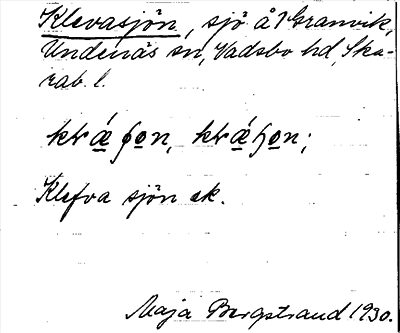 Klevasjön, sjö å Granvik,
Undenäs sn, Vadsbo hd, Ska-
rab. l.
Klefva sjön ek.
Maja Bergstrand 1930.